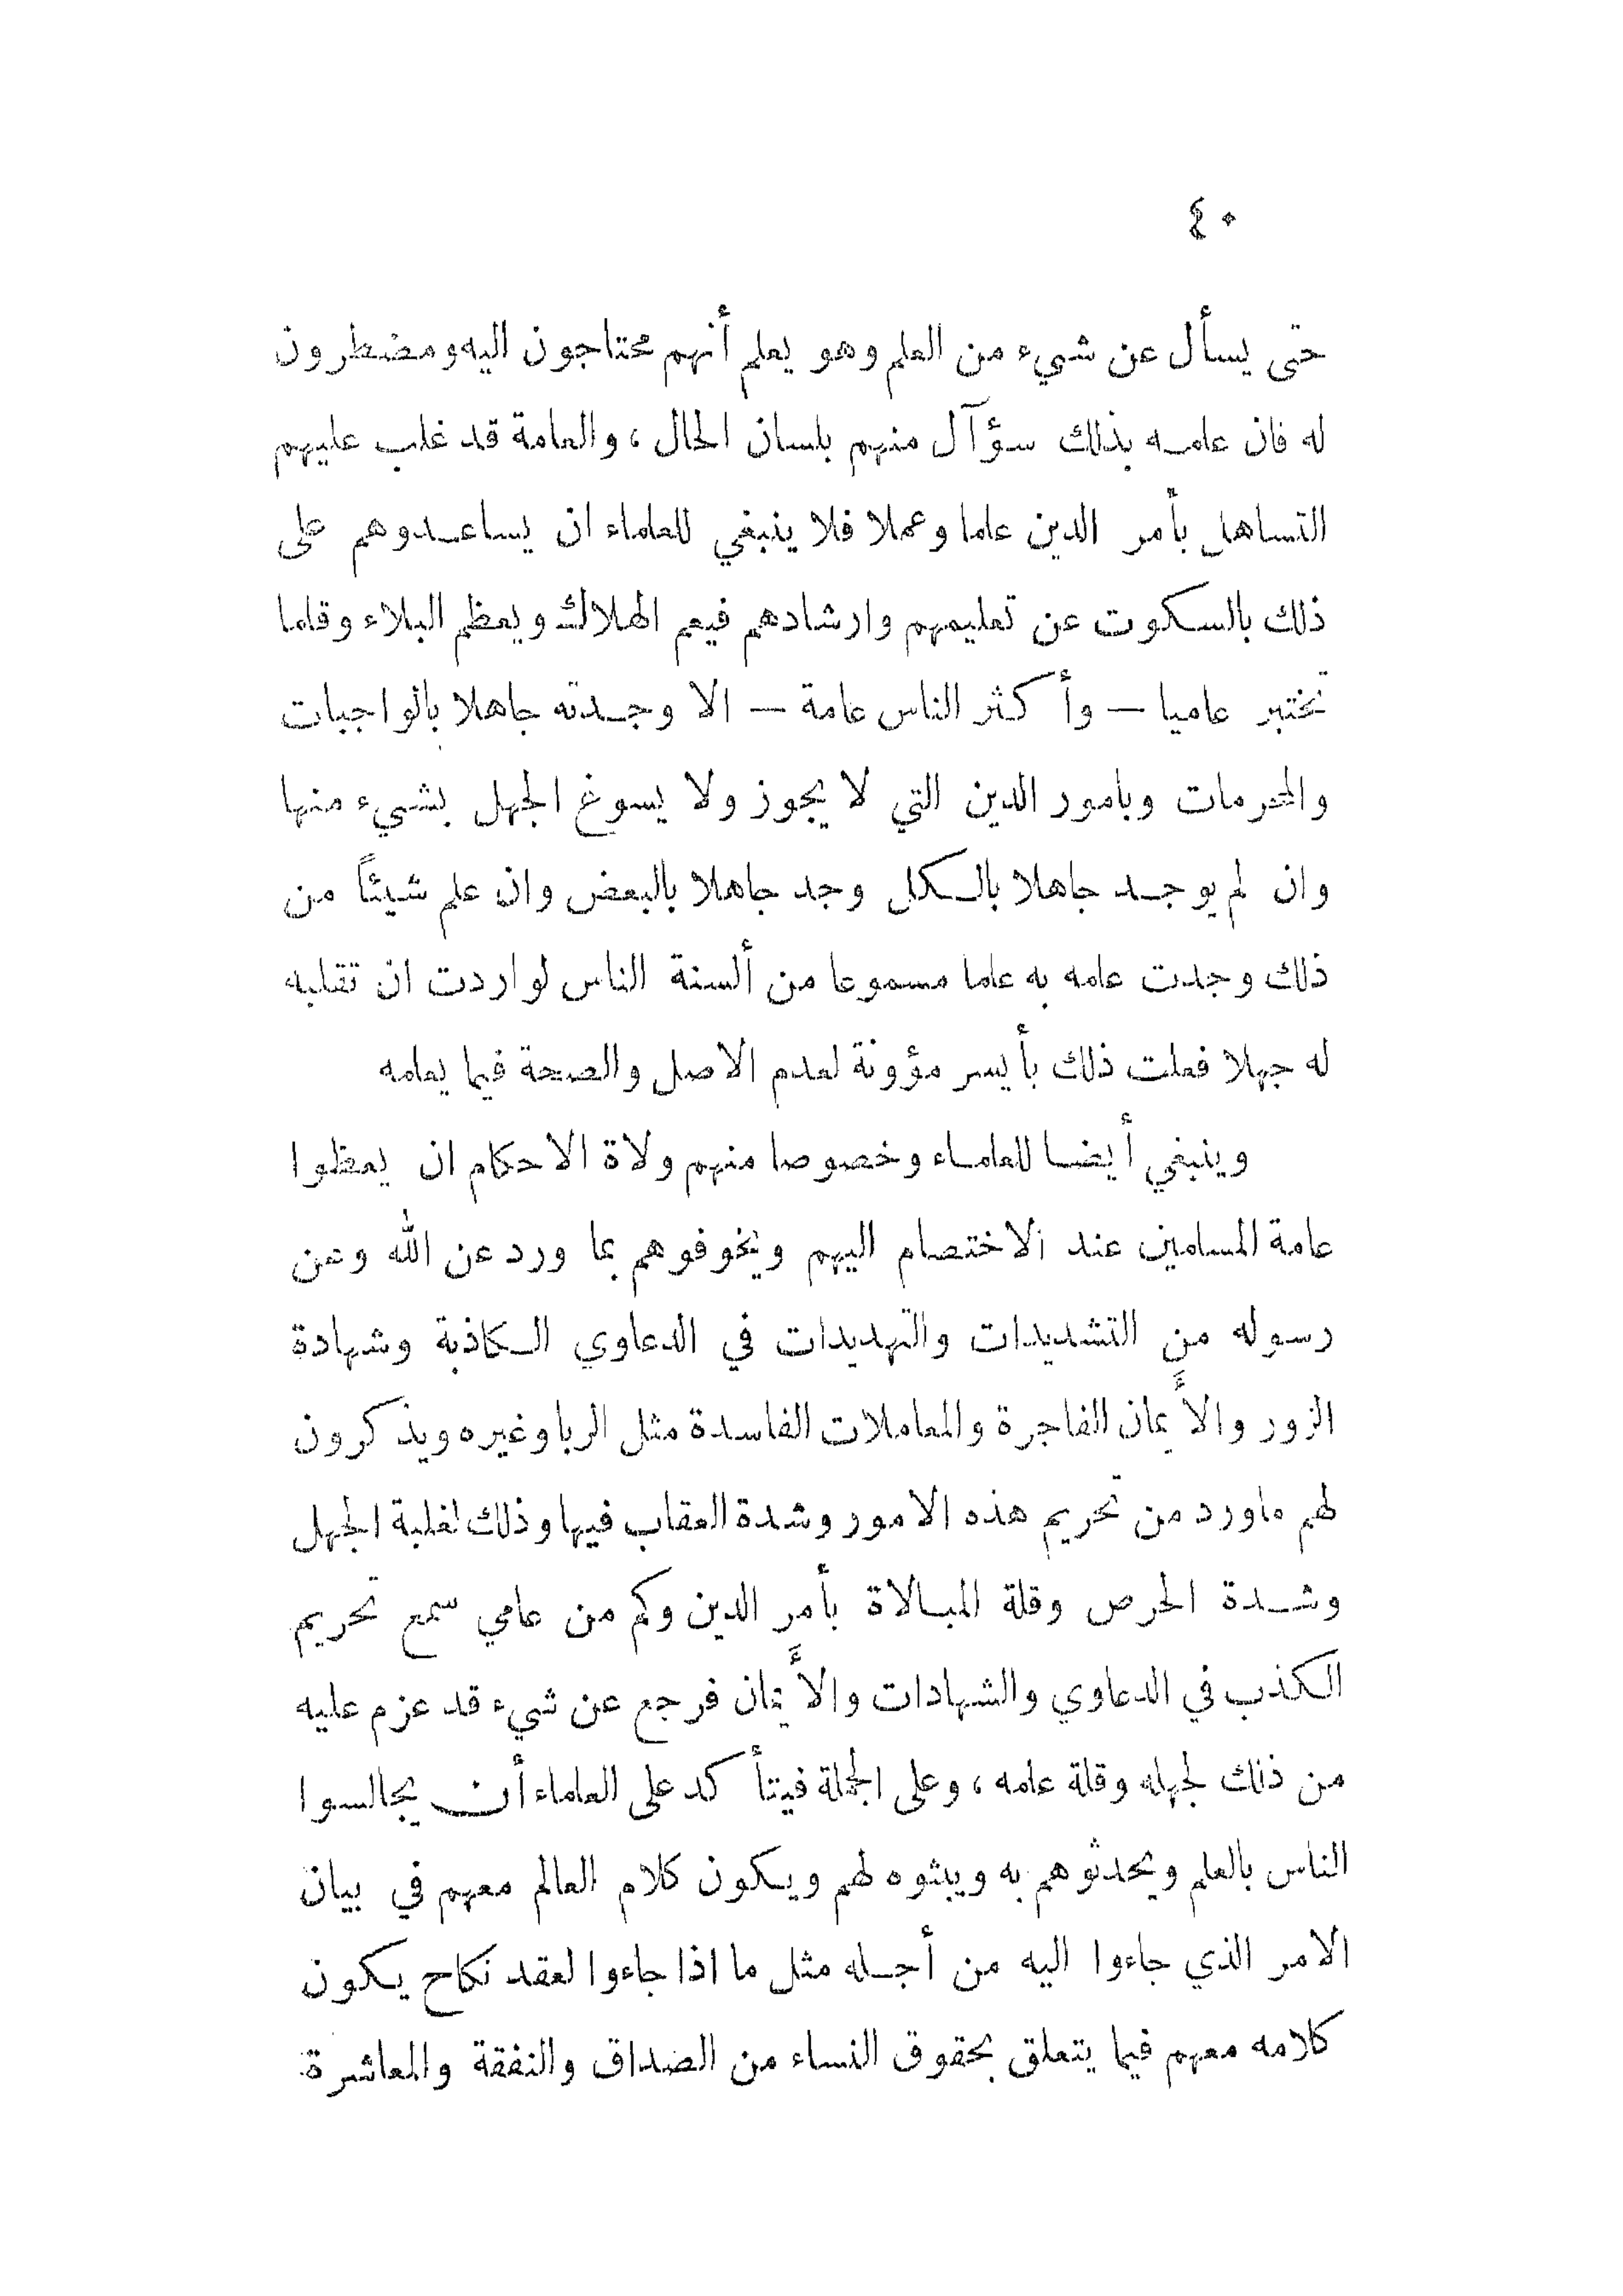 ٤٠
حتى يسأل عن شيء من العلم وهو يعلم أنهم محتاجون اليه ومضطرون
له فان علمه بذلك سؤآل منهم بلسان الحال ، والعامة قد غلب عليهم
التساهل بأمر الدين علما وعملا فلا ينبغي للعلماء ان يساعدوهم على
ذلك بالسكوت عن تعليمهم وارشادهم فيعم الهلاك ويعظم البلاء وقلما
تختبر عاميا — وأكثر الناس عامة — الا وجدته جاهلا بالواجبات
والمحرمات وبامور الدين التي لا يجوز ولا يسوغ الجهل بشيء منها
وان لم يوجد جاهلا بالكل وجد جاهلا بالبعض وان علم شيئاً من
ذلك وجدت علمه به علما مسموعا من ألسنة الناس لو اردت ان تقلبه
له جهلا فعلت ذلك بأيسر مؤونة لعدم الاصل والصحة فيما يعلمه
وينبغي أيضا للعلماء وخصوصا منهم ولاة الاحكام ان يعظوا
عامة المسلمين عند الاختصام اليهم ويخوفوهم بما ورد عن الله وعن
رسوله من التشديدات والتهديدات في الدعاوي الكاذبة وشهادة
الزور والأَيمان الفاجرة والمعاملات الفاسدة مثل الربا وغيره ويذكرون
لهم ماورد من تحريم هذه الامور وشدة العقاب فيها وذلك لغلبة الجهل
وشدة الحرص وقلة المبالاة بأمر الدين وكم من عامي سمع تحريم
الكذب في الدعاوي والشهادات والأَيمان فرجع عن شيء قد عزم عليه
من ذلك لجهله وقلة علمه ، وعلى الجملة فيتأكد على العلماء أن يجالسوا
الناس بالعلم ويحدثوهم به ويبثوه لهم ويكون كلام العالم معهم في بيان
الامر الذي جاءوا اليه من أجله مثل ما اذا جاءوا لعقد نكاح يكون
كلامه معهم فيما يتعلق بحقوق النساء من الصداق والنفقة والمعاشرة